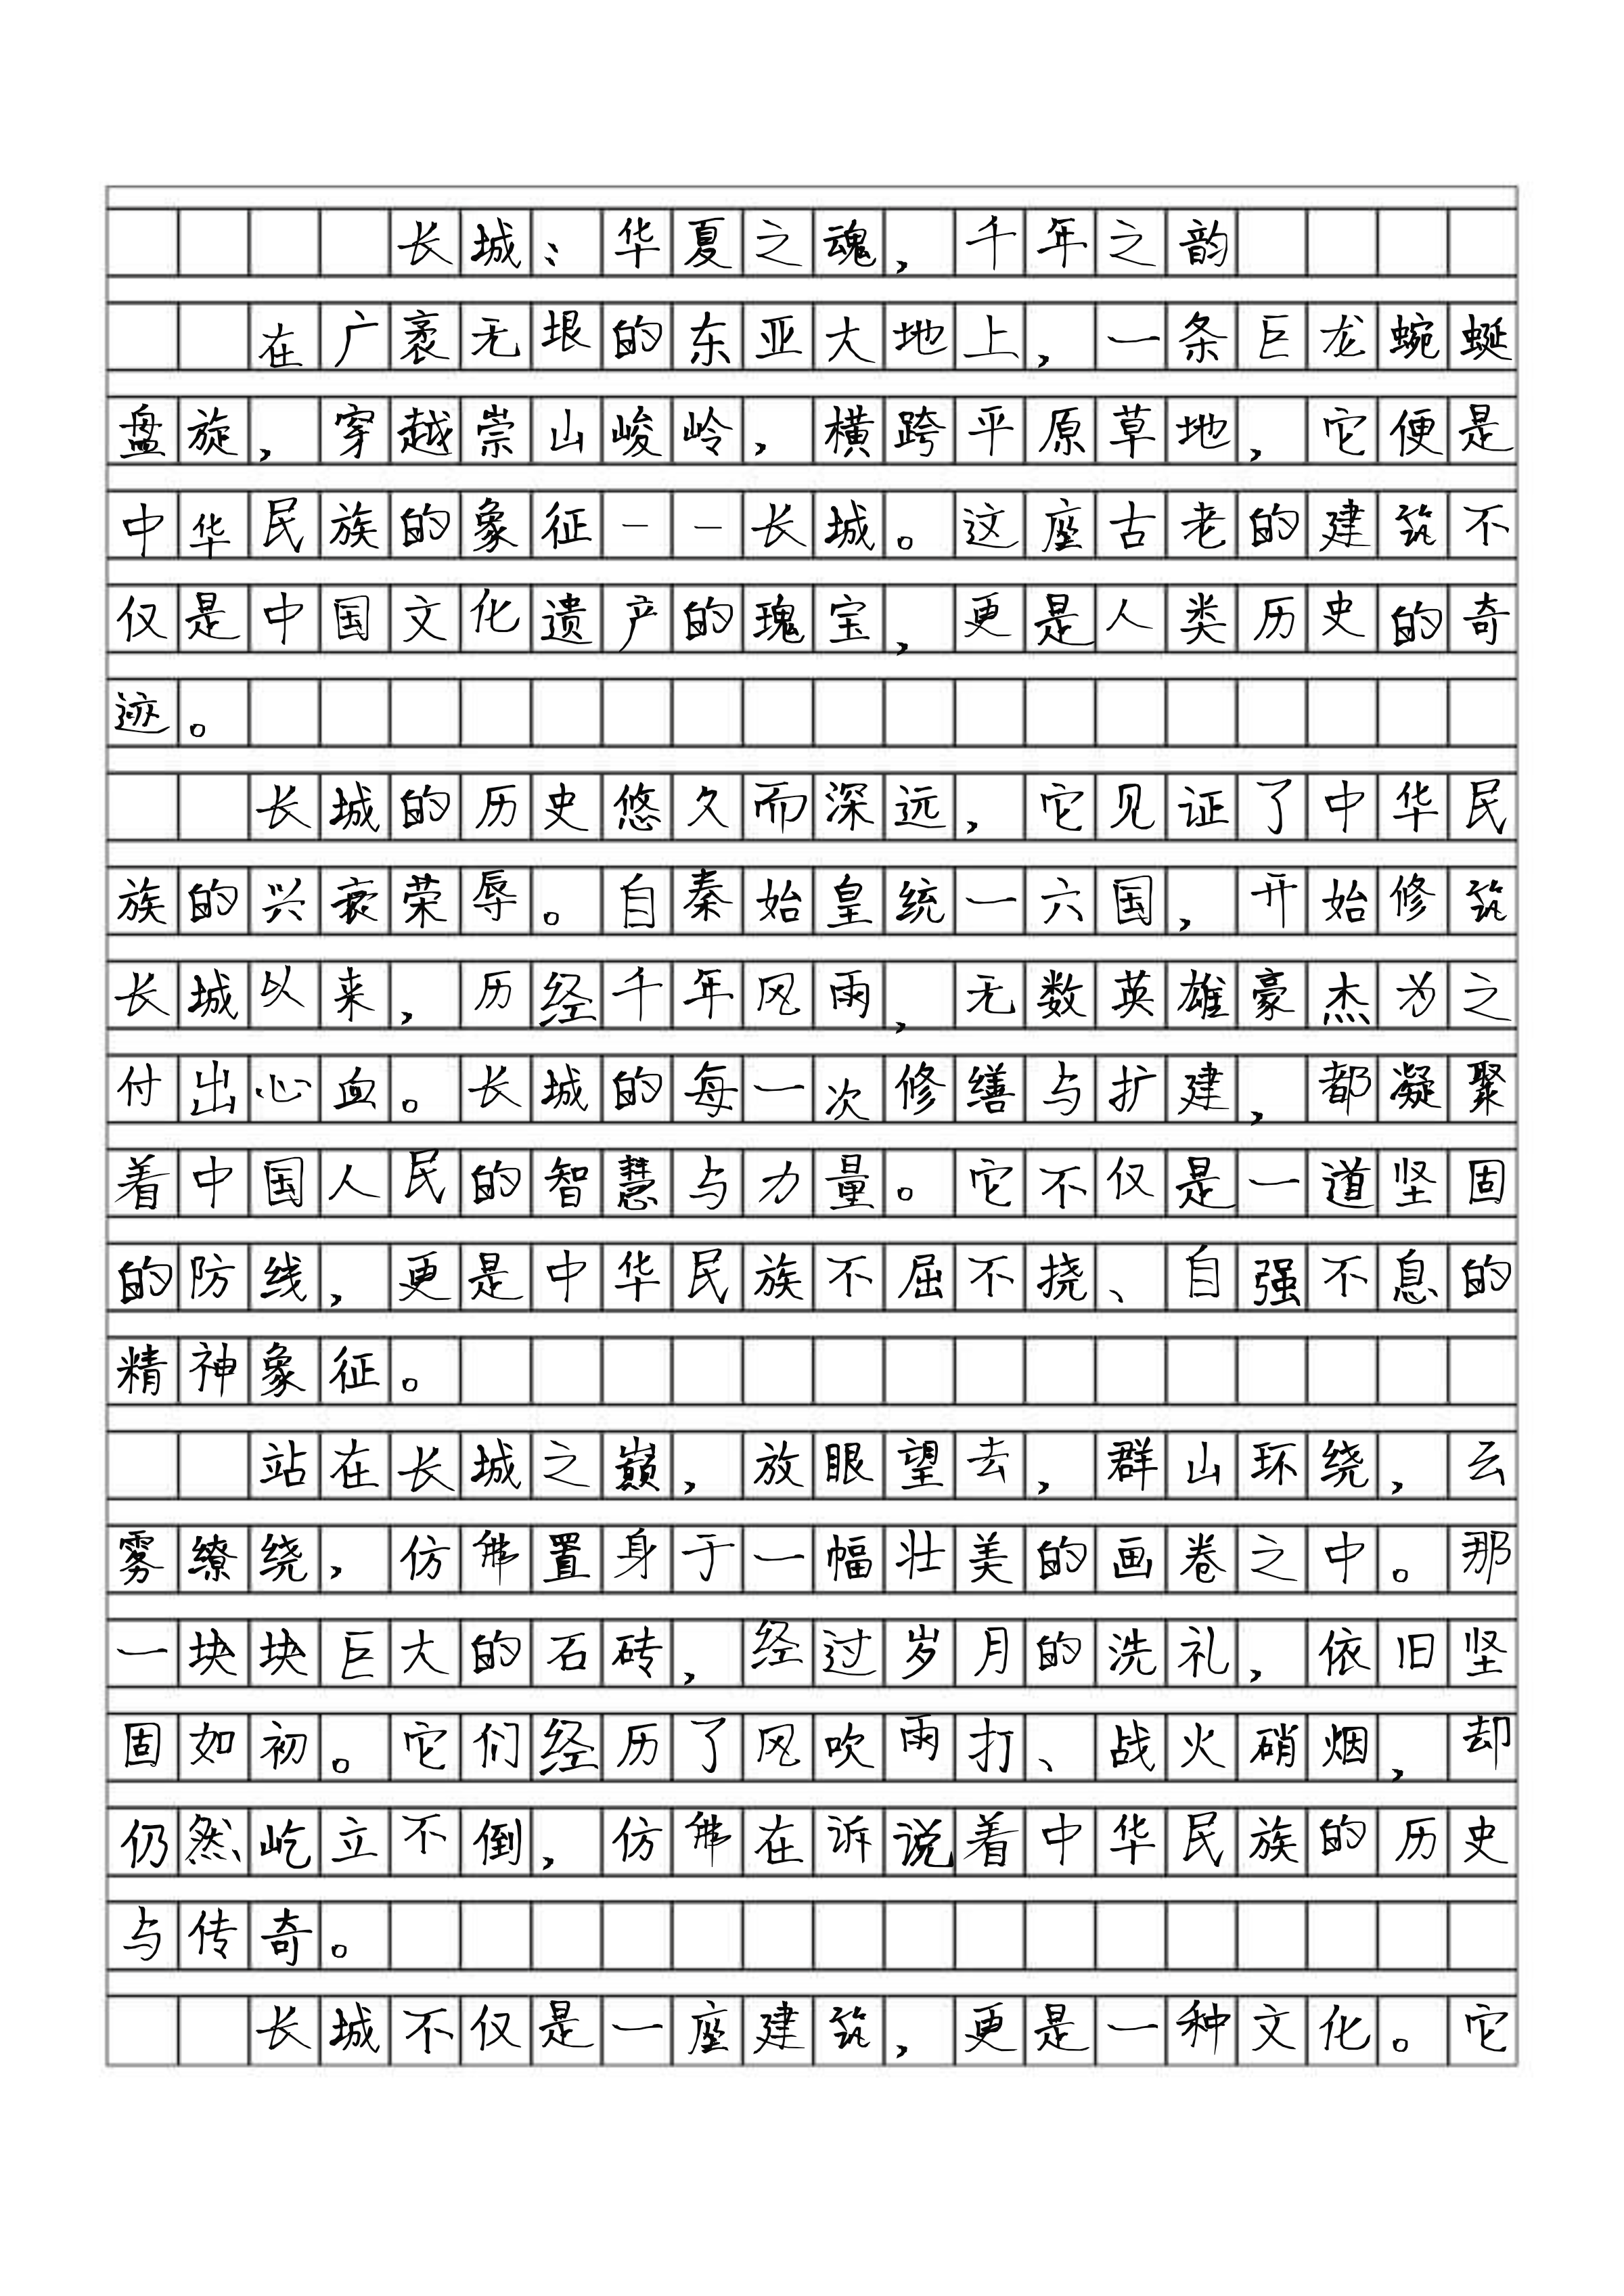 长城：华夏之魂，千年之韵
在广袤无垠的东亚大地上，一条巨龙蜿蜒
盘旋，穿越崇山峻岭，横跨平原草地，它便是
中华民族的象征——长城。这座古老的建筑不
仅是中国文化遗产的瑰宝，更是人类历史的奇
迹。
长城的历史悠久而深远，它见证了中华民
族的兴衰荣辱。自秦始皇统一六国，开始修筑
长城以来，历经千年风雨，无数英雄豪杰为之
付出心血。长城的每一次修缮与扩建，都凝聚
着中国人民的智慧与力量。它不仅是一道坚固
的防线，更是中华民族不屈不挠、自强不息的
精神象征。
站在长城之巅，放眼望去，群山环绕，云
雾缭绕，仿佛置身于一幅壮美的画卷之中。那
一块块巨大的石砖，经过岁月的洗礼，依旧坚
固如初。它们经历了风吹雨打、战火硝烟，却
仍然屹立不倒，仿佛在诉说着中华民族的历史
与传奇。
长城不仅是一座建筑，更是一种文化。它